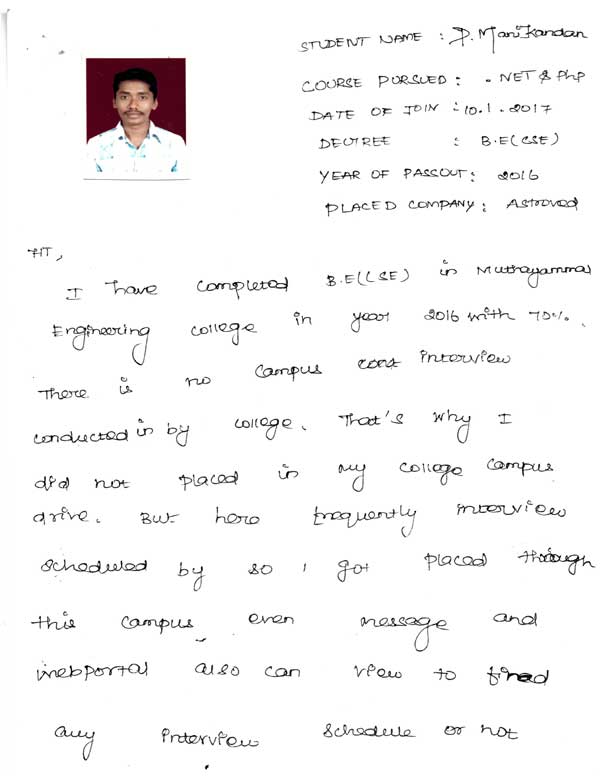 STUDENT NAME : P. Manikandan
COURSE PURSUED : . NET & PhP
DATE OF JOIN :- 10.1.2017
DEGREE : B.E(CSE)
YEAR OF PASSOUT : 2016
PLACED COMPANY : Astroved
FIT,
I have completed B.E(CSE) in Muthayammal
Engineering college in year 2016 with 70%.
There is no campus interview
conducted in by college. That's why I
did not placed in my college campus
drive. But here frequently interview
scheduled by so I got placed through
this campus even message and
webportal also can view to find
any interview schedule or not